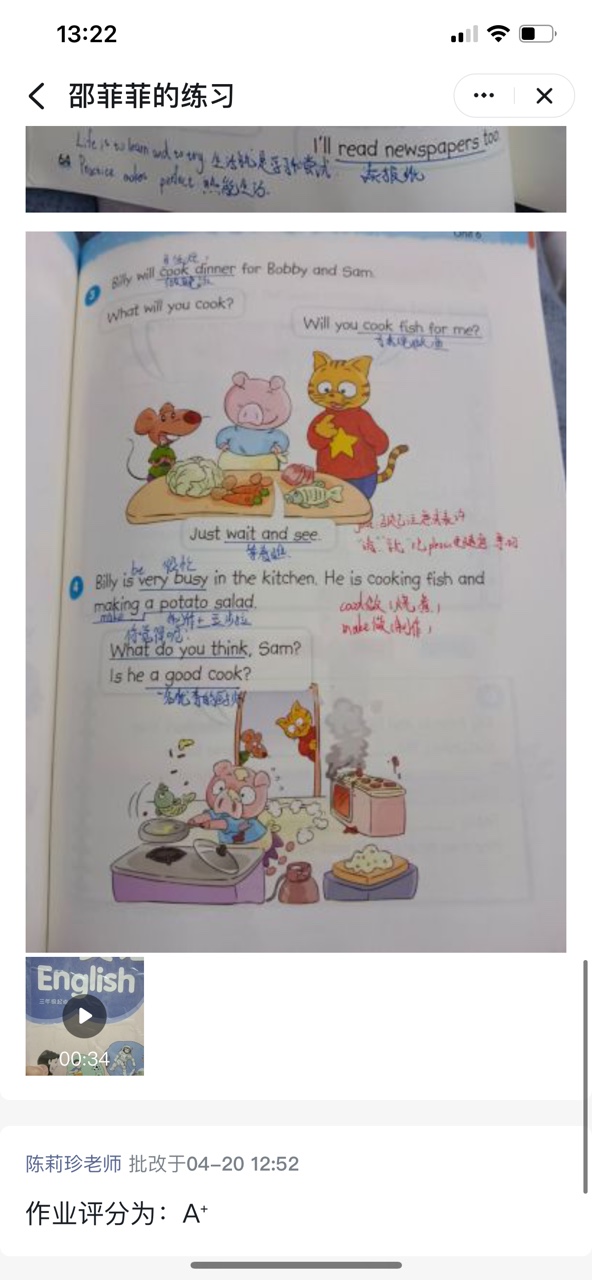 13:22
邵菲菲的练习
Life is to learn and to try 生活就是学和尝试
Practice makes perfect 熟能生巧.
I'll read newspapers too.
读报纸
Unit 6
3 Billy will cook dinner for Bobby and Sam.
What will you cook?
Will you cook fish for me?
Just wait and see.
等着瞧
be 很忙
4 Billy is very busy in the kitchen. He is cooking fish and
making a potato salad.
make
cook做(烧煮)
make做(制作)
你觉得呢?
What do you think, Sam?
Is he a good cook?
一名优秀的厨师
English
00:34
陈莉珍老师 批改于04-20 12:52
作业评分为：A+